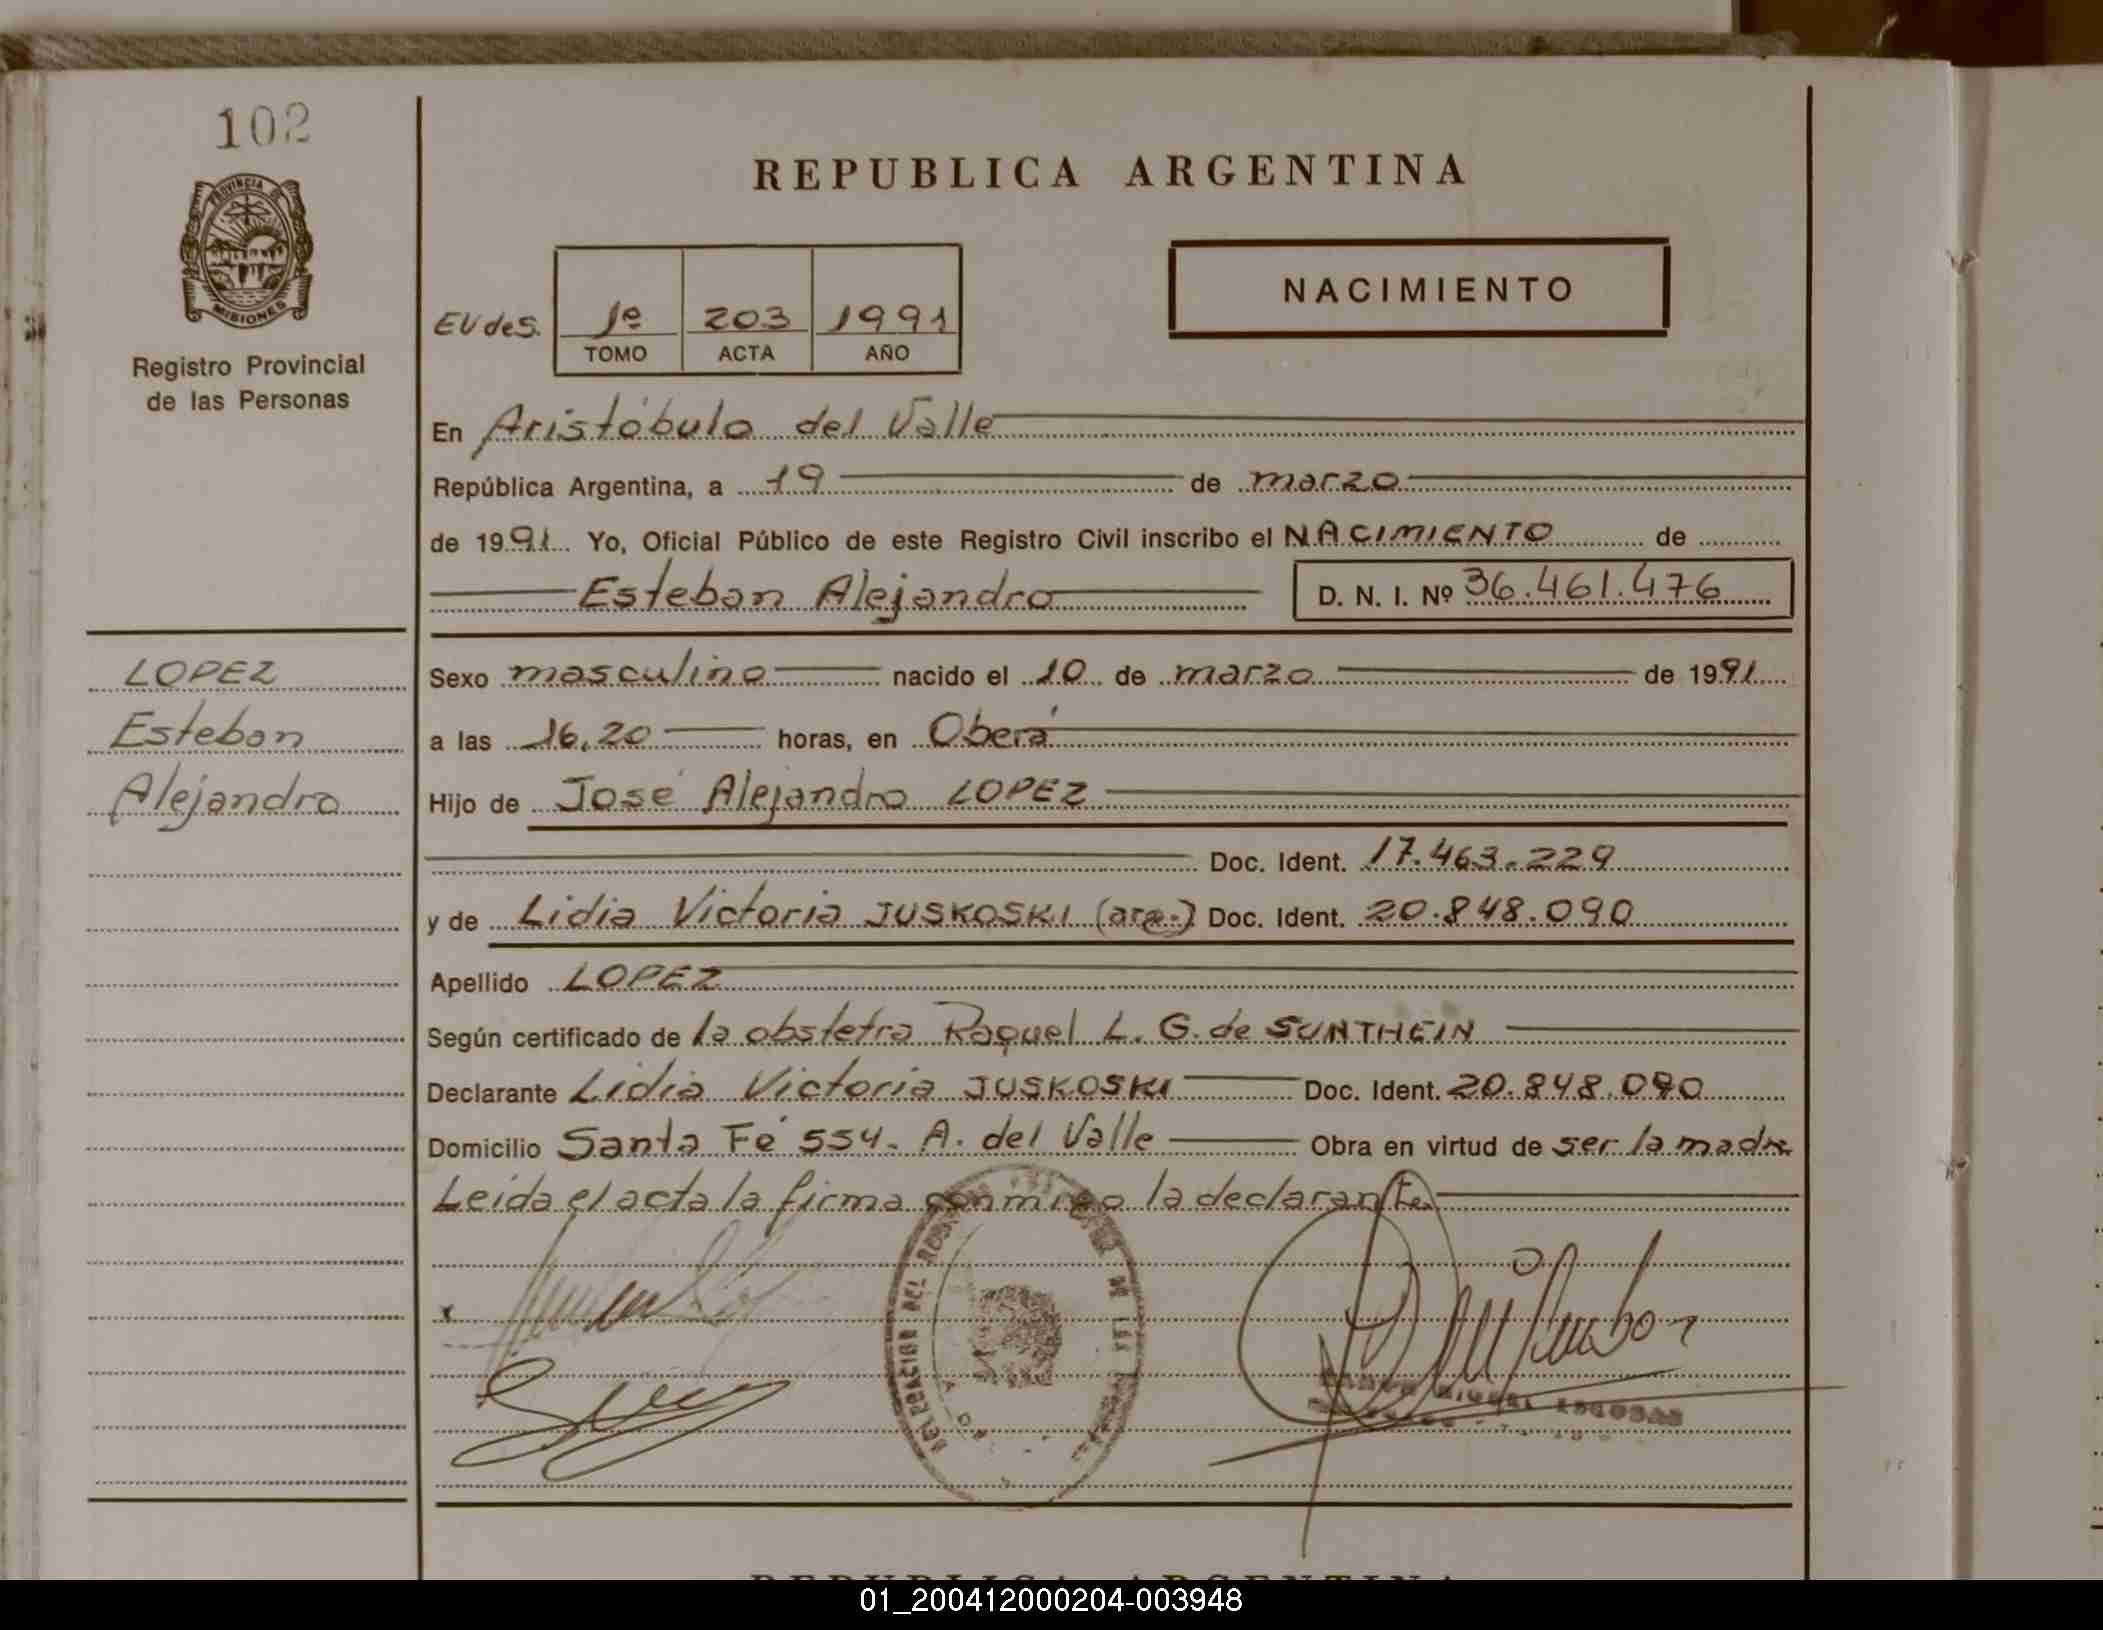 102
PROVINCIA DE
MISIONES
Registro Provincial
de las Personas
REPUBLICA ARGENTINA
NACIMIENTO
EV des. 1º 203 1991
TOMO ACTA AÑO
En Aristóbulo del Valle
República Argentina, a 19 de marzo
de 1991 Yo, Oficial Público de este Registro Civil inscribo el NACIMIENTO de
Esteban Alejandro D. N. I. Nº 36.461.476
LOPEZ
Esteban
Alejandro
Sexo masculino nacido el 10 de marzo de 1991
a las 16,20 horas, en Oberá
Hijo de José Alejandro LOPEZ
Doc. Ident. 17.463.229
y de Lidia Victoria JUSKOSKI (arg.) Doc. Ident. 20.848.090
Apellido LOPEZ
Según certificado de la obstetra Raquel L. G. de SUNTHEIN
Declarante Lidia Victoria JUSKOSKI Doc. Ident. 20.848.090
Domicilio Santa Fé 554. A. del Valle Obra en virtud de ser la madre
Leida el acta la firma conmigo la declarante.
DELEGACION DEL DE LAS
MIGUEL ESCOBAR
REPUBLICA ARGENTINA
01_200412000204-003948